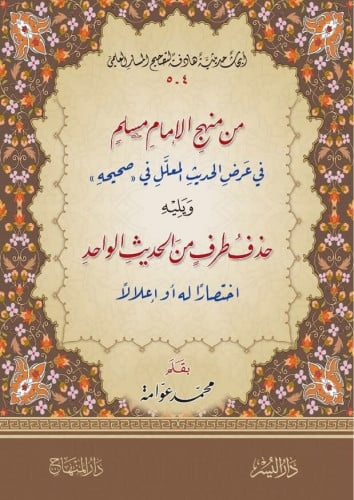 أبحاث حديثية هادفة لتصحيح المسار العلمي
٤ - ٥
من منهج الإمام مسلم
في عرض الحديث المعلل في «صحيحه»
ويليه
حذف طرف من الحديث الواحد
اختصارًا له أو إعلالًا
بقلم
محمد عوامة
دار اليسر
دار المنهاج